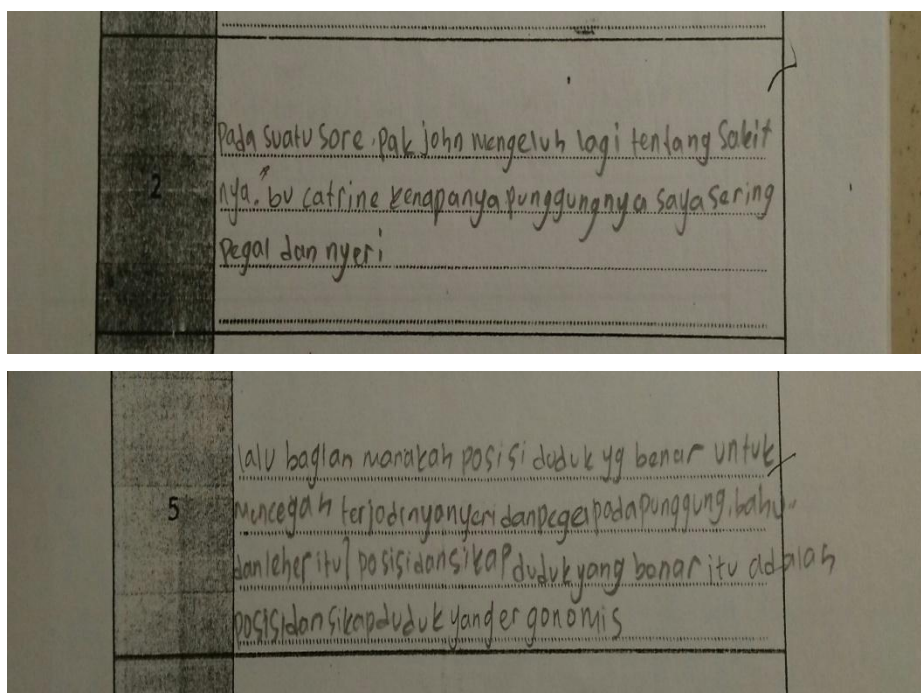 2
Pada suatu sore. Pak john mengeluh lagi tentang Sakit
nya. "bu catrine kenapanya punggungnya saya sering
Pegal dan nyeri
5
lalu bagian manakah posisi duduk yg benar untuk
mencegah terjadinya nyeri dan pegel pada punggung, bahu.
dan leher itu? posisi dan sikap duduk yang benar itu adalah
posisi dan sikap duduk yang ergonomis